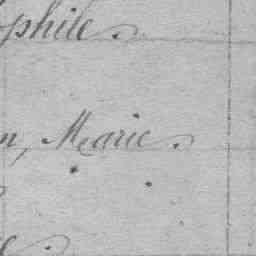 phile.
n, Marie.